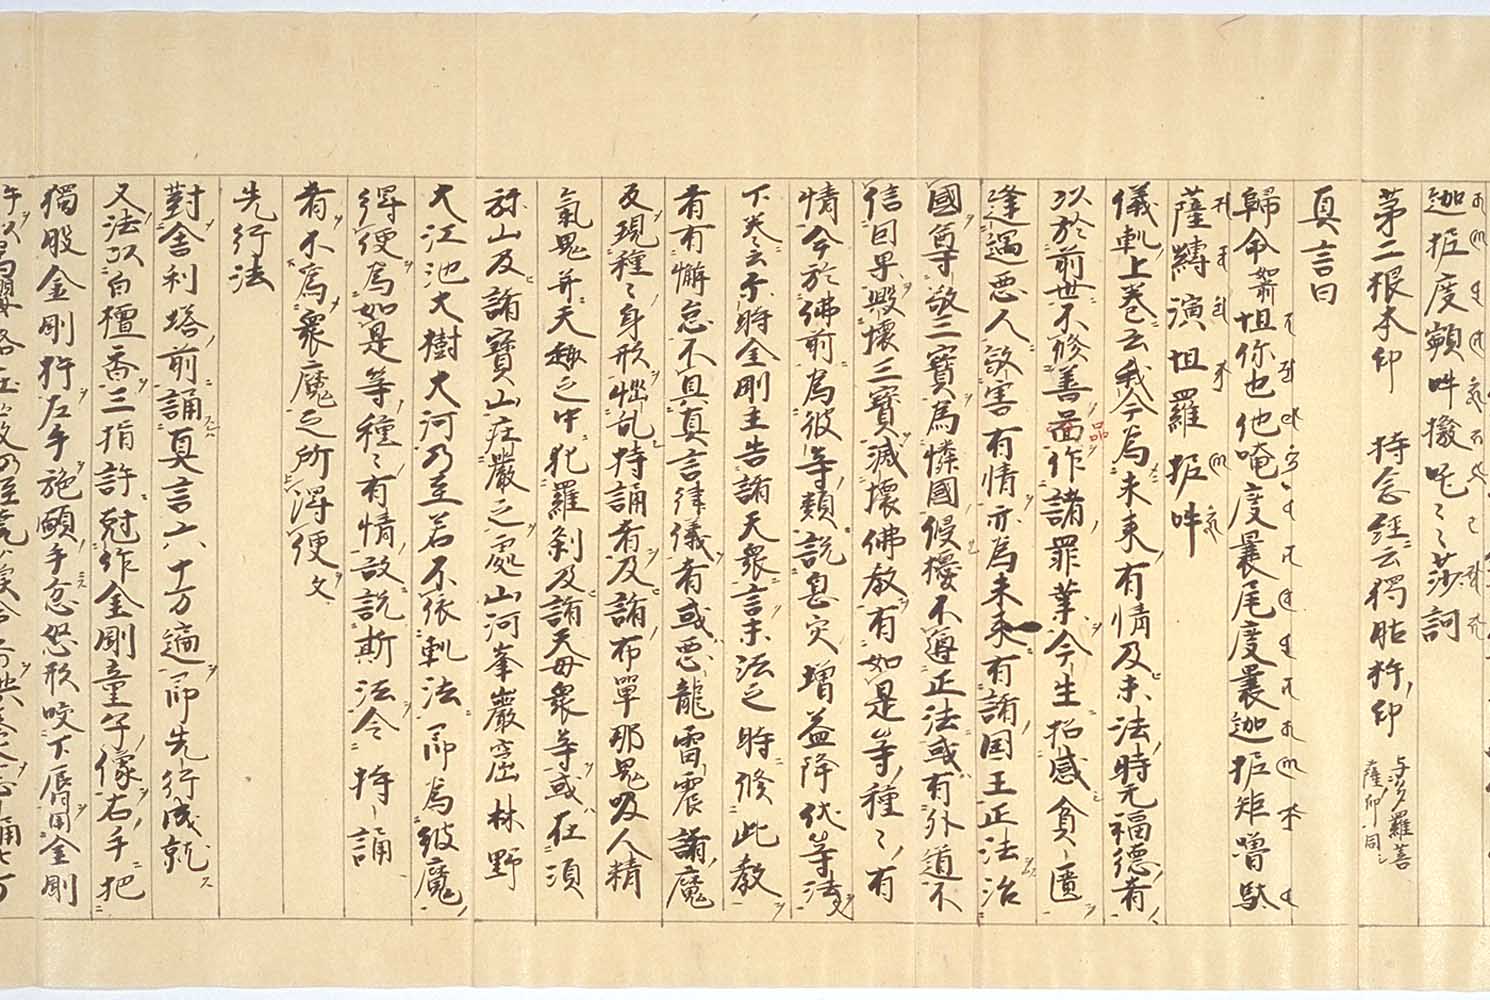 迦抳度顐吽撥吒〻莎訶
第二根本印 持念経云獨股杵印 与多羅菩薩印同
真言曰
歸命如前怛你也他唵度曩尾度曩迦抳矩嚕馱
薩轉演怛羅抳吽
儀軌上巻云我今為未来有情及末法時无福德者
以於前世不修善品作諸罪業今生招感貧匱
逢遇悪人欲害有情亦為未来有諸国王正法治
國尊敬三寶為憐國侵擾不遵正法或有外道不
信因果毀壊三寶滅壊佛教有如是等種〻有
情今於佛前為彼等類説息灾増益降伏等法文
下巻云尓時金剛主告諸天衆言末法之時修此教
者有懈怠不具真言律儀者或悪龍雷震諸魔
及現種〻身形惱乱持誦者及諸布單那鬼吸人精
氣鬼并天趣之中犯羅刹及諸天母衆等或在須
弥山及諸寶山荘嚴之處山河峯巖窟林野
大江池大樹大河乃至若不依軌法即為彼魔
得便為如是等種〻有情故説斯法令持誦
者不為衆魔之所得便文
先行法
對舎利塔前誦真言六十万遍即先行成就
又法以白檀香三指許尅作金剛童子像右手把
獨股金剛杵左手施願手忿怒形咬下脣用金剛